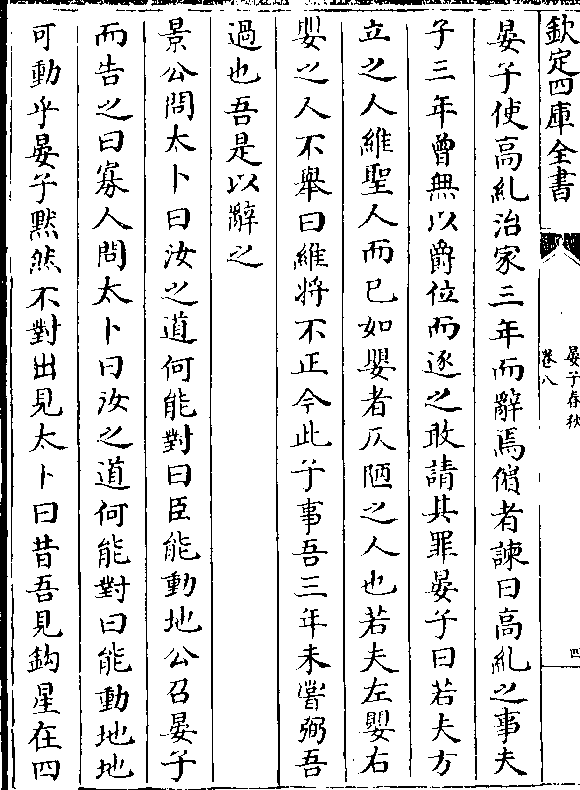 欽定四庫全書
晏子春秋
卷八
四
晏子使高糺治家三年而辭焉儐者諫曰高糺之事夫
子三年曾無以爵位而逐之敢請其罪晏子曰若夫方
立之人維聖人而已如嬰者仄陋之人也若夫左嬰右
嬰之人不舉曰維將不正今此子事吾三年未嘗弼吾
過也吾是以辭之
景公問太卜曰汝之道何能對曰臣能動地公召晏子
而告之曰寡人問太卜曰汝之道何能對曰能動地地
可動乎晏子黙然不對出見太卜曰昔吾見鈎星在四